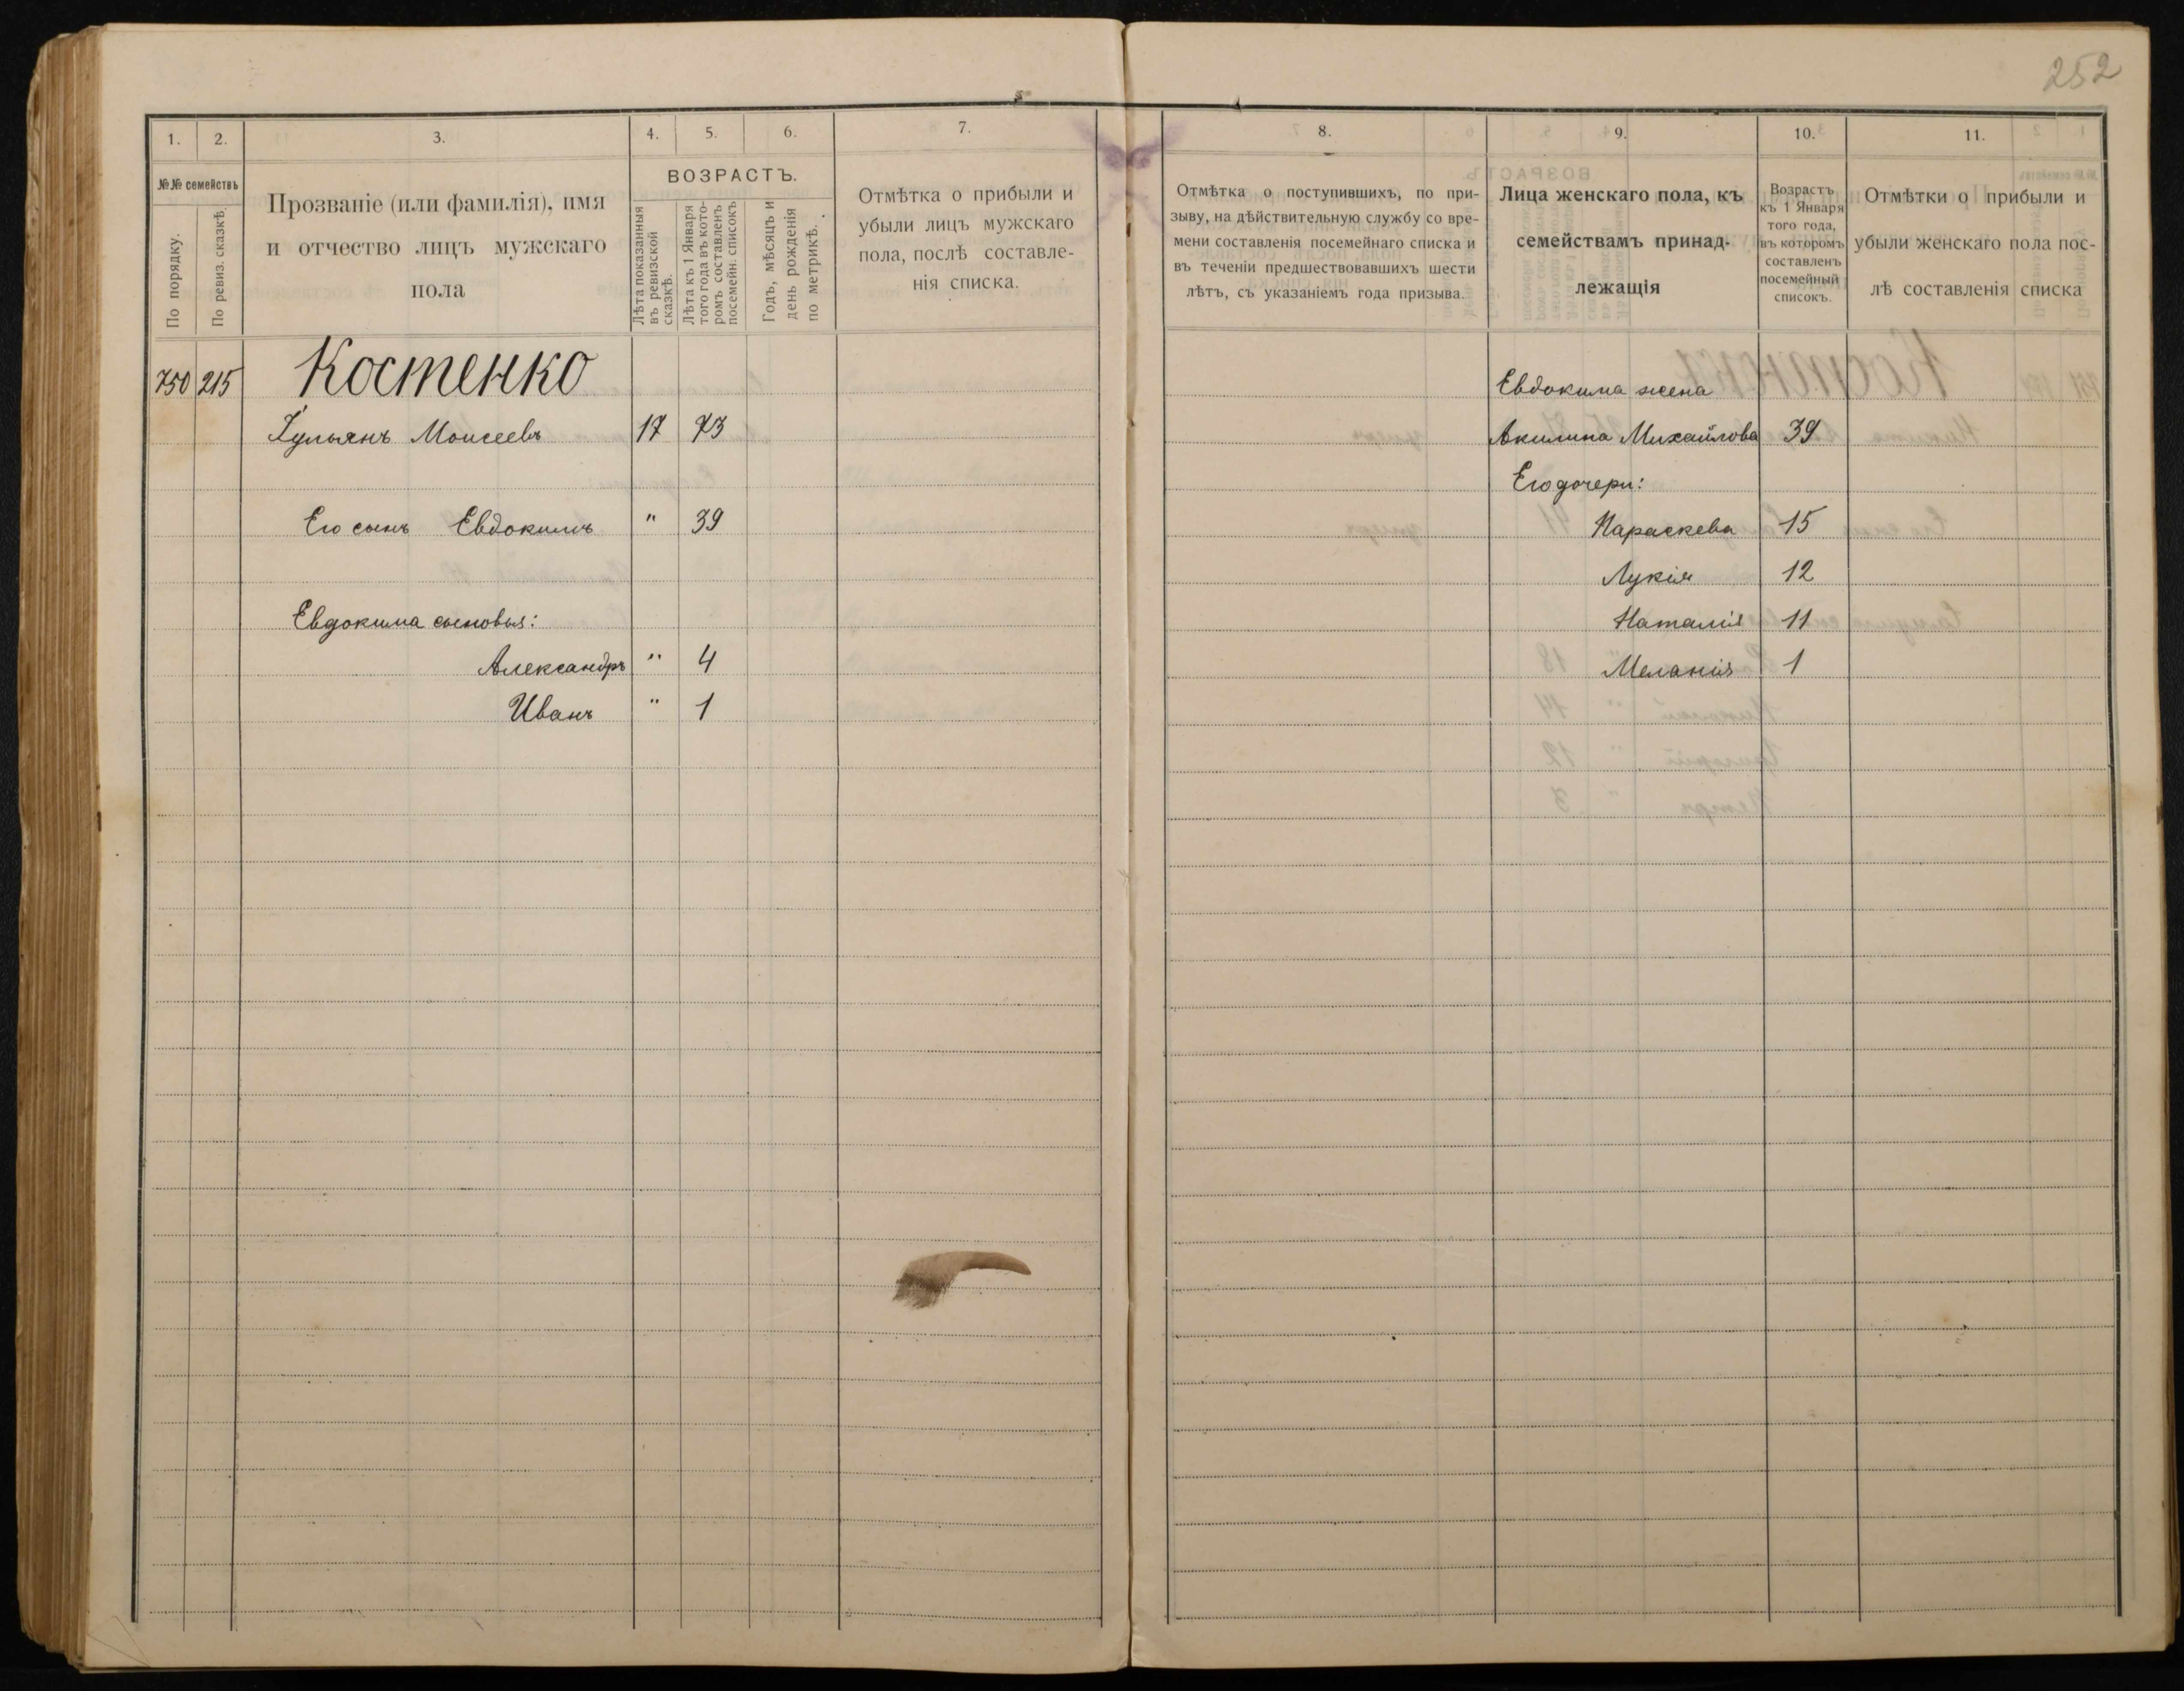 252
1. 2. 3. 4. 5. 6. 7.
№№ семействъ
По порядку.
По ревиз. сказкѣ.
Прозваніе (или фамилія), имя
и отчество лицъ мужскаго
пола
ВОЗРАСТЪ.
Лѣта показанныя
въ ревизской
сказкѣ.
Лѣта къ 1 Января
того года въ кото-
ромъ составленъ
посемейн. списокъ
Годъ, мѣсяцъ и
день рожденія
по метрикѣ.
Отмѣтка о прибыли и
убыли лицъ мужскаго
пола, послѣ составле-
нія списка.
750 215 Костенко
Iульянъ Моисеевъ 17 73
Его сынъ Евдокимъ " 39
Евдокима сыновья:
Александръ " 4
Иванъ " 1
8. 9. 10. 11.
Отмѣтка о поступившихъ, по при-
зыву, на дѣйствительную службу со вре-
мени составленія посемейнаго списка и
въ теченіи предшествовавшихъ шести
лѣтъ, съ указаніемъ года призыва.
Лица женскаго пола, къ
семействамъ принад-
лежащія
Возрастъ
къ 1 Января
того года,
въ которомъ
составленъ
посемейный
списокъ.
Отмѣтки о прибыли и
убыли женскаго пола пос-
лѣ составленія списка
Евдокима жена
Акилина Михайлова 39
Его дочери:
Параскева 15
Лукія 12
Наталія 11
Меланія 1